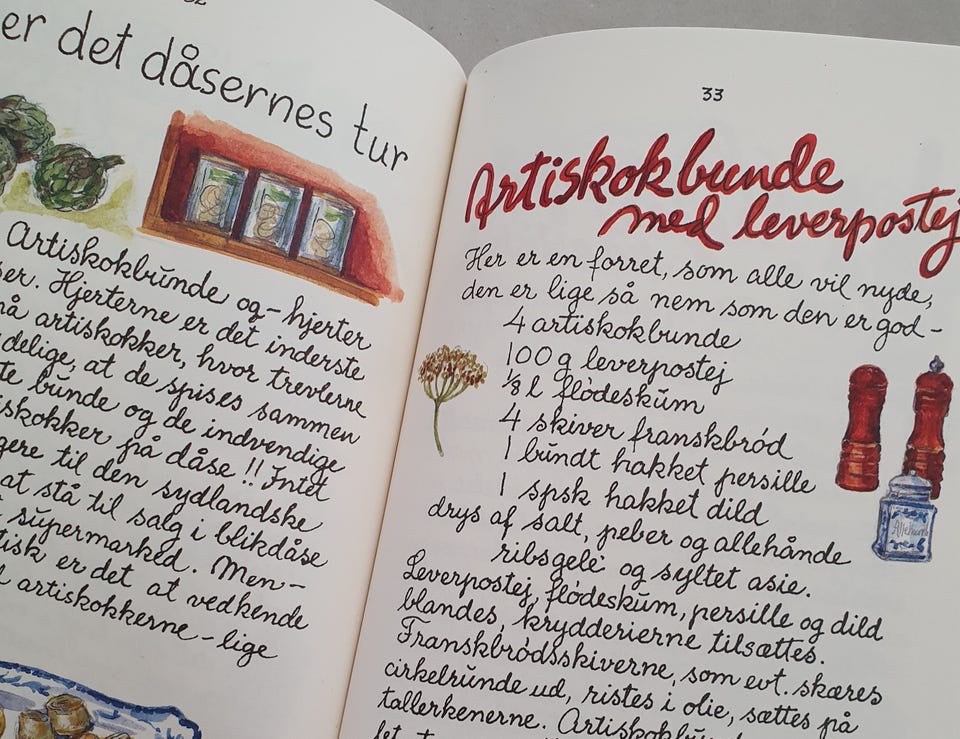 32
er det dåsernes tur
Artiskokbunde og - hjerter
ser. Hjerterne er det inderste
må artiskokker, hvor trevlerne
delige, at de spises sammen
te bunde og de indvendige
iskokker på dåse !! Intet
gere til den sydlandske
at stå til salg i blikdåse
supermarked. Men -
tisk er det at vedkende
artiskokkerne - lige
33
Artiskokbunde
med leverpostej
Her er en forret, som alle vil nyde,
den er lige så nem som den er god -
4 artiskokbunde
100 g leverpostej
1/8 l flødeskum
4 skiver franskbrød
1 bundt hakket persille
1 spsk hakket dild
drys af salt, peber og allehånde
ribsgelé og syltet asie.
Allehånde
Leverpostej, flødeskum, persille og dild
blandes, krydderierne tilsættes.
Franskbrødsskiverne, som evt. skæres
cirkelrunde ud, ristes i olie, sættes på
tallerkenerne. Artiskokbun